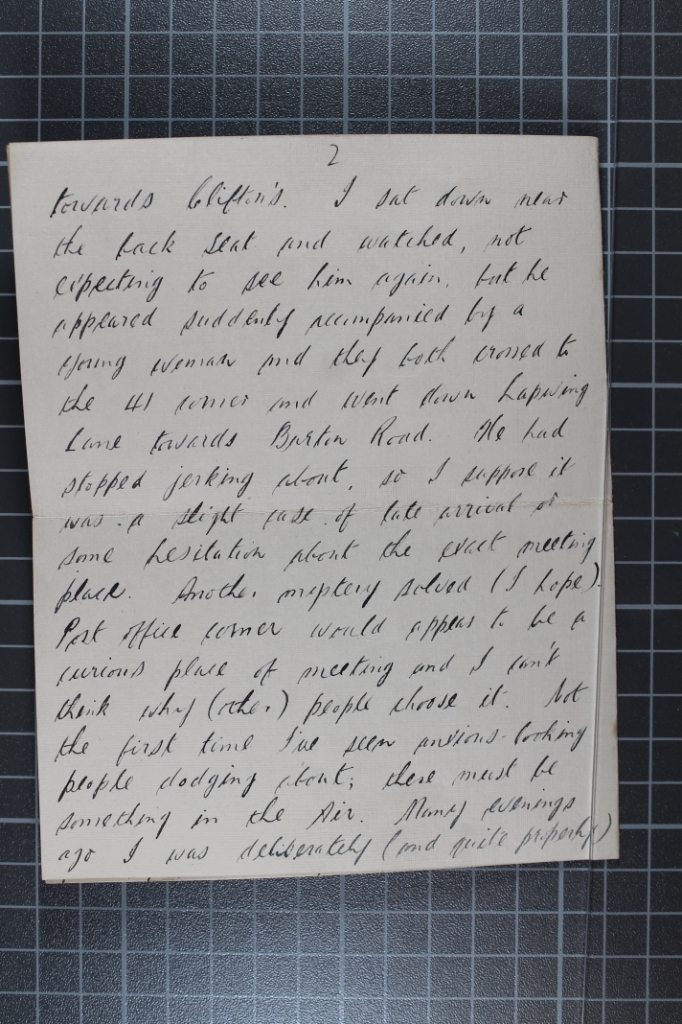 2
towards Clifton's. I sat down near
the back seat and watched, not
expecting to see him again, but he
appeared suddenly accompanied by a
young woman and they both crossed to
the 41 corner and went down Lapwing
Lane towards Burton Road. He had
stopped jerking about, so I suppose it
was a slight case of late arrival or
some hesitation about the exact meeting
place. Another mystery solved (I hope).
Post office corner would appear to be a
curious place of meeting and I can't
think why (other) people choose it. Not
the first time I've seen anxious-looking
people dodging about; there must be
something in the Air. Many evenings
ago I was deliberately (and quite properly)